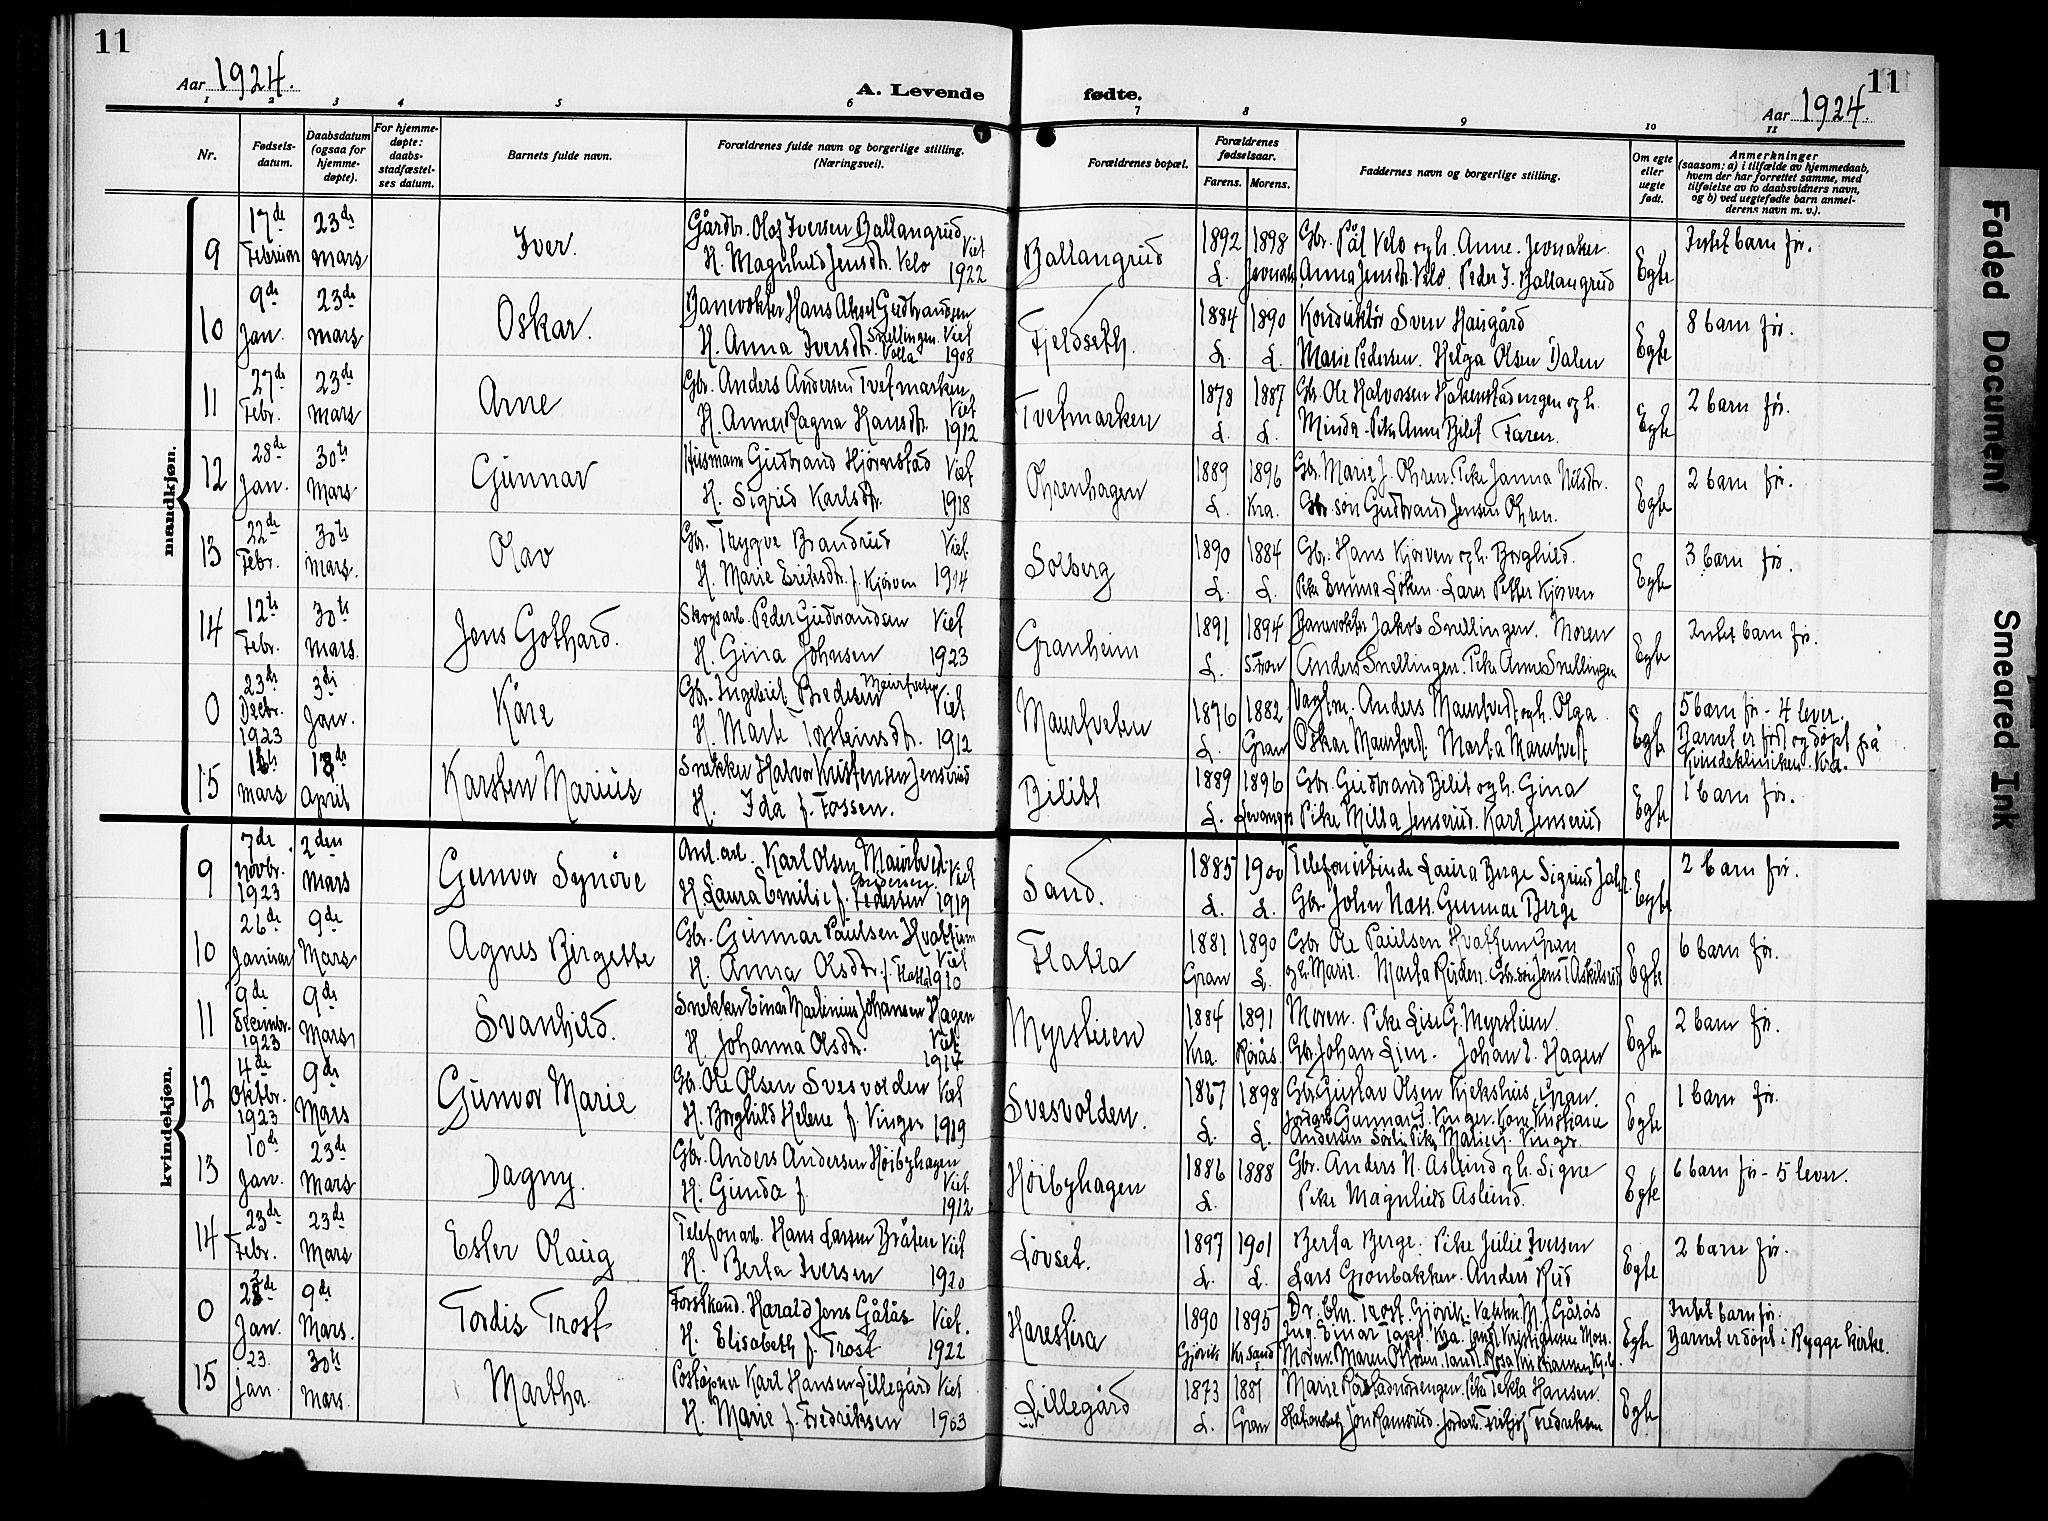 11
11
Aar 1924.
A. Levende fødte.
Aar 1924.
1 2 3 4 5 6 7 8 9 10 11
Nr.
Fødsels-
datum.
Daabsdatum
(ogsaa for
hjemme-
døpte).
For hjemme-
døpte:
daabs-
stadfæstel-
ses datum.
Barnets fulde navn.
Forældrenes fulde navn og borgerlige stilling.
(Næringsvei).
Forældrenes bopæl.
Forældrenes
fødselsaar.
Farens. Morens.
Faddernes navn og borgerlige stilling.
Om egte
eller
uegte
født.
Anmerkninger
(saasom: a) i tilfælde av hjemmedaab,
hvem der har forrettet samme, med
tilføielse av to daabsvidners navn,
og b) ved uegtefødte barn anmel-
derens navn m. v.).
mandkjøn.
9 17de Februar 23de mars Iver Gårdbr. Olof Iversen Ballangrud Viet Ballangrud 1892 1898 Gbr. Pål Velo og h. Anne. Jevnaker Egte Intet barn før.
H. Magnhild Jensdtr. Velo 1922 L. Jevnaker Anna Jensdtr. Velo. Peder I. Ballangrud
10 9de Jan. 23de mars Oskar. Banevokter Hans Aksel Gudbrandsen Fjeldseth. 1884 1890 Konduktør Sven Haugård Egte 8 barn før.
Snellingen. Viet
H. Anna Iversdtr. Volla 1908 L. L. Marie Pedersen. Helga Olsen Dalen
11 27de Febr. 23de Mars Arne Gbr. Anders Andersen Tvetmarken Viet Tvetmarken 1878 1887 Gbr. Ole Halvorsen Hakenstadengen og h. Egte 2 barn før.
H. Anne Ragna Hansdtr. 1912 L. L. Minda. Pike Anne Bilit Faren.
12 28de Jan. 30te Mars Gunnar Husmann Gudbrand Hjørnstad Viet Ohrenhagen 1889 1896 Gbr. Marie J. Ohren. Pike Janna Nilsdtr. Egte 2 barn før.
H. Sigrid Karlsdtr. 1918 L. Kra. Gbr. søn Gudbrand Jensen Ohren.
13 22de Febr. 30te Mars. Olav Gbr. Trygve Brandrud Viet Solberg 1890 1884 Gbr. Hans Kjørven og h. Borghild. Egte 3 barn før.
H. Marie Eriksdtr. f. Kjørven 1914 L. L. Pike Emma Løken. Lars Petter Kjørven
14 12te Febr. 30te mars. Jens Gothard. Skogsarb. Peder Gudbrandsen Viet Granheim 1891 1894 Banevokter Jakob Snellingen. Moren Egte Intet barn før.
H. Gina Johnsen 1923 L. S. Fron Anders Snellingen. Pike Anne Snellingen
0 23de Decbr. 1923 3di Jan. Kåre Gbr. Ingebret Bredesen Maurtvedt Viet Maurtveten 1876 1882 Vagtm. Anders Maurtvedt og h. Olga Egte 5 barn før - 4 lever.
H. Marte Torsteinsdtr. 1912 L. Gran Oskar Maurtvedt. Marta Maurtvedt Barnet er født og døpt på
Kvindekliniken Kra.
15 mars 18de April Karsten Marius Snekker Halvor Kristensen Jenserud Bilitt 1889 1896 Gbr. Gudbrand Bilit og h. Gina Egte 1 barn før.
H. Ida f. Fossen. L. Levanger Pike Milla Jenserud. Karl Jenserud
kvindekjøn.
9 7de Novbr. 1923 2den Mars Gunvor Synøve Anl. arb. Karl Olsen Maurtvedt Viet Sand. 1885 1900 Telefonistinde Laura Berge Sigrund Egte 2 barn før.
H. Laura Emilie f. Pedersen 1919 L. L. Gbr. John Næss. Gunnar Berge
10 26de Januar 9de Mars Agnes Birgette Gbr. Gunnar Paulsen Hvattum Viet Flatla 1881 1890 Gbr Ole Paulsen Hvattum Gran Egte 6 barn før.
H. Anna Olsdtr. f. Flatla 1910 Gran L. og h. Marie. Marta Ruden. Gbr. søn Jens T Askilsrud
11 9de Decembr. 1923 9de Mars Svanhild. Snekker Einar Martinius Johansen Hagen Viet Myrstuen 1884 1891 Moren. Pike Lise G. Myrstuen. Egte 2 barn før.
H. Johanna Olsdtr. 1917 Kra Røros. Gbr. Johan Lier. Johan E. Hagen
12 4de Oktbr. 1923 9de Mars Gunvor Marie Gbr. Ole Olsen Svesvolden Viet Svesvolden. 1898 Gbr. Gustav Olsen Kjekshus, Gran. Egte 1 barn før.
H. Borghild Helene f. Vinger 1919 L. L. Jordarb. Gunnar J. Vinger. Kone Kristiane
Andersen Sørli. Pike Marie G. Vinger.
13 10de Jan. 23de Mars Dagny. Gbr. Anders Andersen Høibyhagen Viet Høibyhagen 1886 1888 Gbr. Anders N. Aslund og h. Signe Egte 6 barn før - 5 lever.
H. Gunda f. 1912 L. Pike Magnhild Aslund.
14 23de Febr. 23de Mars Ester Olaug Telefonarb. Hans Larsen Bråten Viet Løvset. 1897 1901 Berta Berge. Pike Julie Iversen Egte 2 barn før.
H. Berta Iversen 1920 L. L. Lars Grønbakken. Anders Rud
0 Jan. 9de Mars. Tordis Trost Forstkand. Harald Jens Gålås Viet. Harestua 1890 1895 Dr. Chr. Trost. Gjøvik. M. J. Gålås Egte Intet barn før.
H. Elisabeth f. Trost 1922 Gjøvik Kr.sand Ing. Einar Tapp. Kra. Moss. Barnet er døpt i Rygge kirke.
Moren.
15 23. Jan. 30te Mars. Martha. Poståpner Karl Hansen Lillegård Viet Lillegård 1873 1881 Marie Pike Tekla Hansen. Egte
H. Marie f. Fredriksen 1903 L. Gran Jon Ramsrud. Jordarb. Fritjof Fredriksen
Faded Document
Smeared Ink